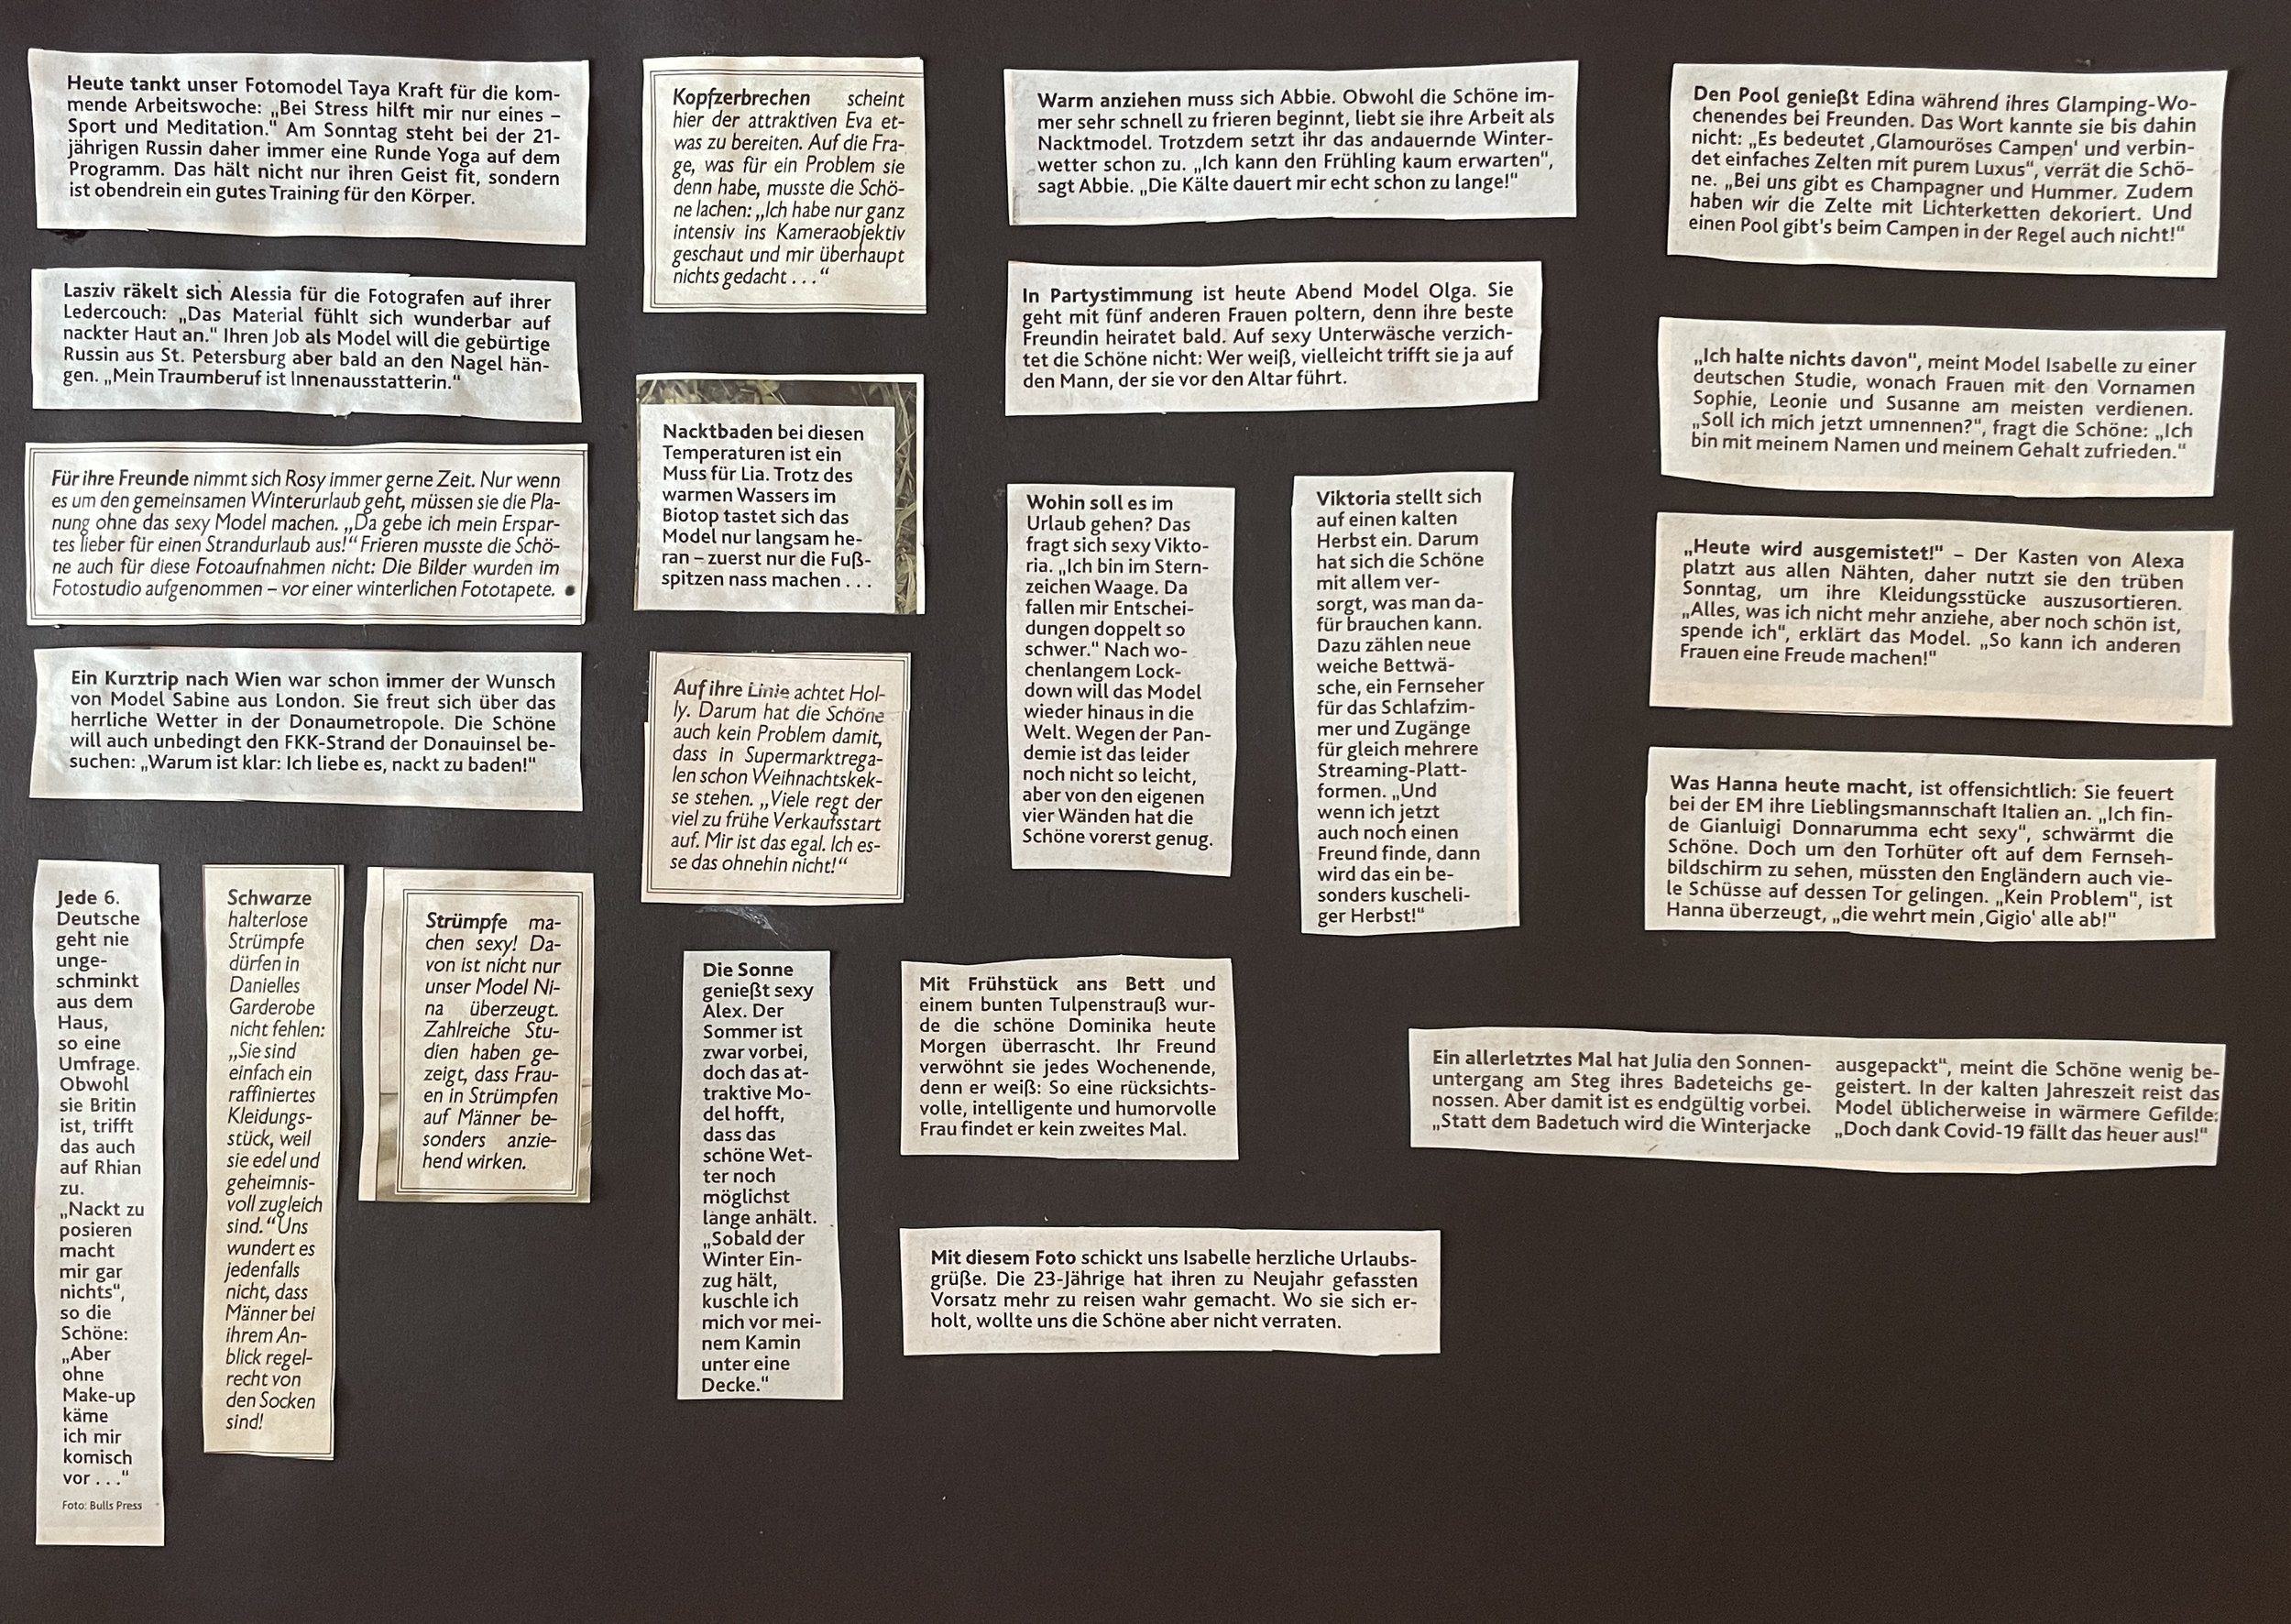 Heute tankt unser Fotomodel Taya Kraft für die kom-
mende Arbeitswoche: „Bei Stress hilft mir nur eines –
Sport und Meditation.“ Am Sonntag steht bei der 21-
jährigen Russin daher immer eine Runde Yoga auf dem
Programm. Das hält nicht nur ihren Geist fit, sondern
ist obendrein ein gutes Training für den Körper.
Lasziv räkelt sich Alessia für die Fotografen auf ihrer
Ledercouch: „Das Material fühlt sich wunderbar auf
nackter Haut an.“ Ihren Job als Model will die gebürtige
Russin aus St. Petersburg aber bald an den Nagel hän-
gen. „Mein Traumberuf ist Innenausstatterin.“
Für ihre Freunde nimmt sich Rosy immer gerne Zeit. Nur wenn
es um den gemeinsamen Winterurlaub geht, müssen sie die Pla-
nung ohne das sexy Model machen. „Da gebe ich mein Erspar-
tes lieber für einen Strandurlaub aus!“ Frieren musste die Schö-
ne auch für diese Fotoaufnahmen nicht: Die Bilder wurden im
Fotostudio aufgenommen – vor einer winterlichen Fototapete. ●
Ein Kurztrip nach Wien war schon immer der Wunsch
von Model Sabine aus London. Sie freut sich über das
herrliche Wetter in der Donaumetropole. Die Schöne
will auch unbedingt den FKK-Strand der Donauinsel be-
suchen: „Warum ist klar: Ich liebe es, nackt zu baden!“
Jede 6.
Deutsche
geht nie
unge-
schminkt
aus dem
Haus,
so eine
Umfrage.
Obwohl
sie Britin
ist, trifft
das auch
auf Rhian
zu.
„Nackt zu
posieren
macht
mir gar
nichts“,
so die
Schöne:
„Aber
ohne
Make-up
käme
ich mir
komisch
vor . . .“
Foto: Bulls Press
Schwarze
halterlose
Strümpfe
dürfen in
Danielles
Garderobe
nicht fehlen:
„Sie sind
einfach ein
raffiniertes
Kleidungs-
stück, weil
sie edel und
geheimnis-
voll zugleich
sind.“ Uns
wundert es
jedenfalls
nicht, dass
Männer bei
ihrem An-
blick regel-
recht von
den Socken
sind!
Strümpfe ma-
chen sexy! Da-
von ist nicht nur
unser Model Ni-
na überzeugt.
Zahlreiche Stu-
dien haben ge-
zeigt, dass Frau-
en in Strümpfen
auf Männer be-
sonders anzie-
hend wirken.
Kopfzerbrechen scheint
hier der attraktiven Eva et-
was zu bereiten. Auf die Fra-
ge, was für ein Problem sie
denn habe, musste die Schö-
ne lachen: „Ich habe nur ganz
intensiv ins Kameraobjektiv
geschaut und mir überhaupt
nichts gedacht . . .“
Nacktbaden bei diesen
Temperaturen ist ein
Muss für Lia. Trotz des
warmen Wassers im
Biotop tastet sich das
Model nur langsam he-
ran – zuerst nur die Fuß-
spitzen nass machen . . .
Auf ihre Linie achtet Hol-
ly. Darum hat die Schöne
auch kein Problem damit,
dass in Supermarktrega-
len schon Weihnachtskek-
se stehen. „Viele regt der
viel zu frühe Verkaufsstart
auf. Mir ist das egal. Ich es-
se das ohnehin nicht!“
Die Sonne
genießt sexy
Alex. Der
Sommer ist
zwar vorbei,
doch das at-
traktive Mo-
del hofft,
dass das
schöne Wet-
ter noch
möglichst
lange anhält.
„Sobald der
Winter Ein-
zug hält,
kuschle ich
mich vor mei-
nem Kamin
unter eine
Decke.“
Warm anziehen muss sich Abbie. Obwohl die Schöne im-
mer sehr schnell zu frieren beginnt, liebt sie ihre Arbeit als
Nacktmodel. Trotzdem setzt ihr das andauernde Winter-
wetter schon zu. „Ich kann den Frühling kaum erwarten“,
sagt Abbie. „Die Kälte dauert mir echt schon zu lange!“
In Partystimmung ist heute Abend Model Olga. Sie
geht mit fünf anderen Frauen poltern, denn ihre beste
Freundin heiratet bald. Auf sexy Unterwäsche verzich-
tet die Schöne nicht: Wer weiß, vielleicht trifft sie ja auf
den Mann, der sie vor den Altar führt.
Wohin soll es im
Urlaub gehen? Das
fragt sich sexy Vikto-
ria. „Ich bin im Stern-
zeichen Waage. Da
fallen mir Entschei-
dungen doppelt so
schwer.“ Nach wo-
chenlangem Lock-
down will das Model
wieder hinaus in die
Welt. Wegen der Pan-
demie ist das leider
noch nicht so leicht,
aber von den eigenen
vier Wänden hat die
Schöne vorerst genug.
Viktoria stellt sich
auf einen kalten
Herbst ein. Darum
hat sich die Schöne
mit allem ver-
sorgt, was man da-
für brauchen kann.
Dazu zählen neue
weiche Bettwä-
sche, ein Fernseher
für das Schlafzim-
mer und Zugänge
für gleich mehrere
Streaming-Platt-
formen. „Und
wenn ich jetzt
auch noch einen
Freund finde, dann
wird das ein be-
sonders kuscheli-
ger Herbst!“
Mit Frühstück ans Bett und
einem bunten Tulpenstrauß wur-
de die schöne Dominika heute
Morgen überrascht. Ihr Freund
verwöhnt sie jedes Wochenende,
denn er weiß: So eine rücksichts-
volle, intelligente und humorvolle
Frau findet er kein zweites Mal.
Mit diesem Foto schickt uns Isabelle herzliche Urlaubs-
grüße. Die 23-Jährige hat ihren zu Neujahr gefassten
Vorsatz mehr zu reisen wahr gemacht. Wo sie sich er-
holt, wollte uns die Schöne aber nicht verraten.
Den Pool genießt Edina während ihres Glamping-Wo-
chenendes bei Freunden. Das Wort kannte sie bis dahin
nicht: „Es bedeutet ‚Glamouröses Campen‘ und verbin-
det einfaches Zelten mit purem Luxus“, verrät die Schö-
ne. „Bei uns gibt es Champagner und Hummer. Zudem
haben wir die Zelte mit Lichterketten dekoriert. Und
einen Pool gibt's beim Campen in der Regel auch nicht!“
„Ich halte nichts davon“, meint Model Isabelle zu einer
deutschen Studie, wonach Frauen mit den Vornamen
Sophie, Leonie und Susanne am meisten verdienen.
„Soll ich mich jetzt umnennen?“, fragt die Schöne: „Ich
bin mit meinem Namen und meinem Gehalt zufrieden.“
„Heute wird ausgemistet!“ – Der Kasten von Alexa
platzt aus allen Nähten, daher nutzt sie den trüben
Sonntag, um ihre Kleidungsstücke auszusortieren.
„Alles, was ich nicht mehr anziehe, aber noch schön ist,
spende ich“, erklärt das Model. „So kann ich anderen
Frauen eine Freude machen!“
Was Hanna heute macht, ist offensichtlich: Sie feuert
bei der EM ihre Lieblingsmannschaft Italien an. „Ich fin-
de Gianluigi Donnarumma echt sexy“, schwärmt die
Schöne. Doch um den Torhüter oft auf dem Fernseh-
bildschirm zu sehen, müssten den Engländern auch vie-
le Schüsse auf dessen Tor gelingen. „Kein Problem“, ist
Hanna überzeugt, „die wehrt mein ‚Gigio‘ alle ab!“
Ein allerletztes Mal hat Julia den Sonnen-
untergang am Steg ihres Badeteichs ge-
nossen. Aber damit ist es endgültig vorbei.
„Statt dem Badetuch wird die Winterjacke
ausgepackt“, meint die Schöne wenig be-
geistert. In der kalten Jahreszeit reist das
Model üblicherweise in wärmere Gefilde:
„Doch dank Covid-19 fällt das heuer aus!“